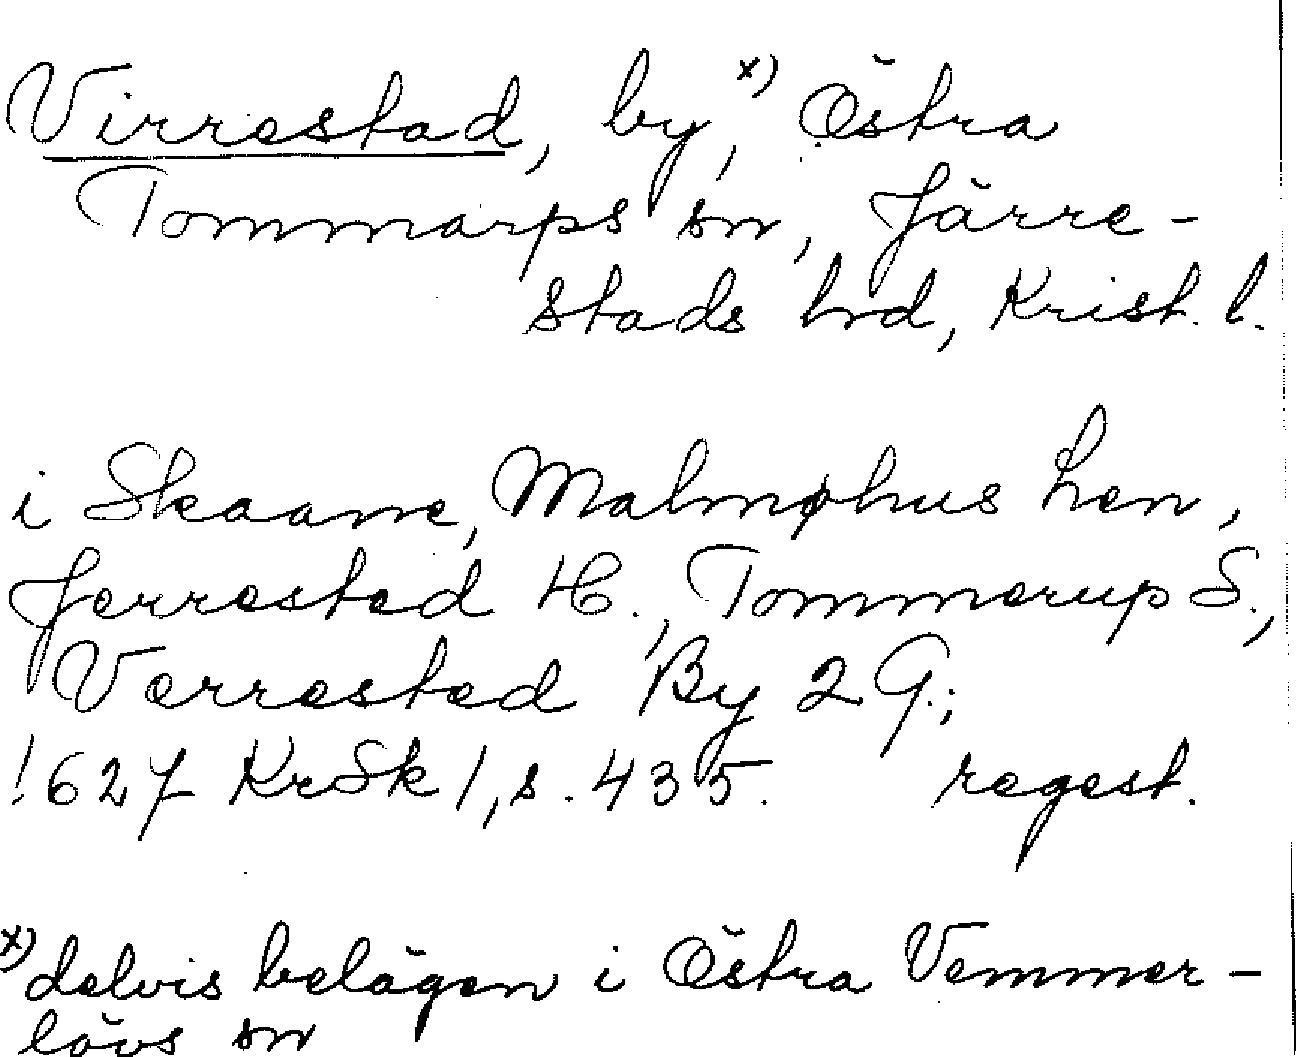 Virrestad, by,x) Östra
Tommarps sn, Järre-
stads hrd, Krist. l.
i Skaane, Malmøhus Len,
Jerrested H., Tommerup S.,
Verrested By 2 G.;
1627 KrSk 1, s. 435. regest.
x) delvis belägen i Östra Vemmer-
lövs sn